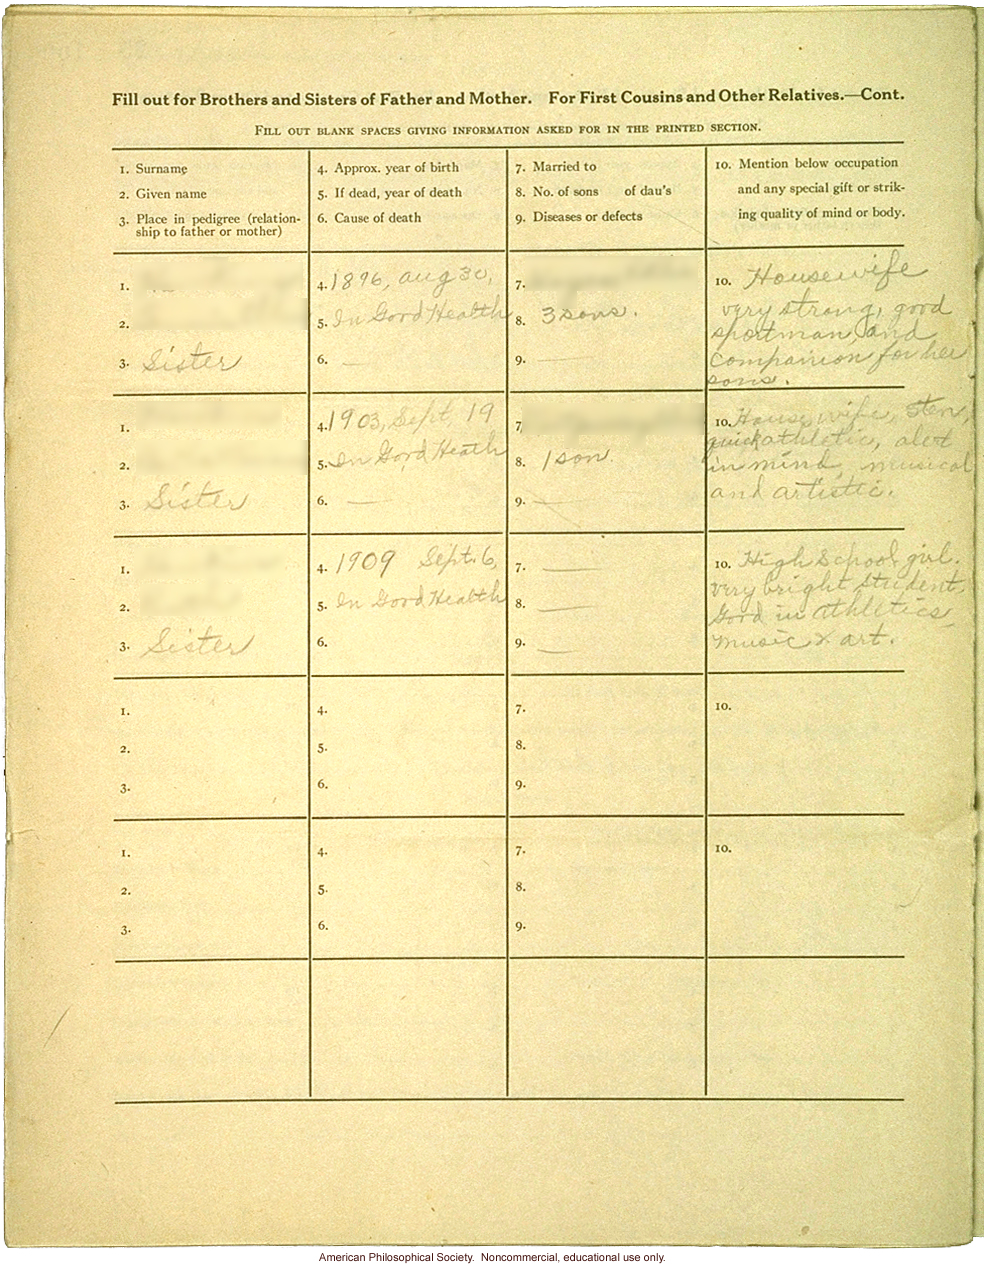 Fill out for Brothers and Sisters of Father and Mother. For First Cousins and Other Relatives.—Cont.
FILL OUT BLANK SPACES GIVING INFORMATION ASKED FOR IN THE PRINTED SECTION.
1. Surname
2. Given name
3. Place in pedigree (relation-
ship to father or mother)
4. Approx. year of birth
5. If dead, year of death
6. Cause of death
7. Married to
8. No. of sons of dau's
9. Diseases or defects
10. Mention below occupation
and any special gift or strik-
ing quality of mind or body.
1.
2.
3. Sister
4. 1896, aug 30,
5. In Good Health
6. —
7.
8. 3 sons.
9. —
10. Housewife
very strong, good
sportman, and
companion for her
sons.
1.
2.
3. Sister
4. 1903, Sept, 19
5. In Good Heath
6. —
7.
8. 1 son.
9. —
10. House wife, sten,
quick athletic, alert
in mind, musical
and artistic.
1.
2.
3. Sister
4. 1909 Sept. 6,
5. In Good Health
6.
7. —
8. —
9. —
10. High School girl.
very bright student,
Good in athletics,
music & art.
1.
2.
3.
4.
5.
6.
7.
8.
9.
10.
1.
2.
3.
4.
5.
6.
7.
8.
9.
10.
American Philosophical Society. Noncommercial, educational use only.